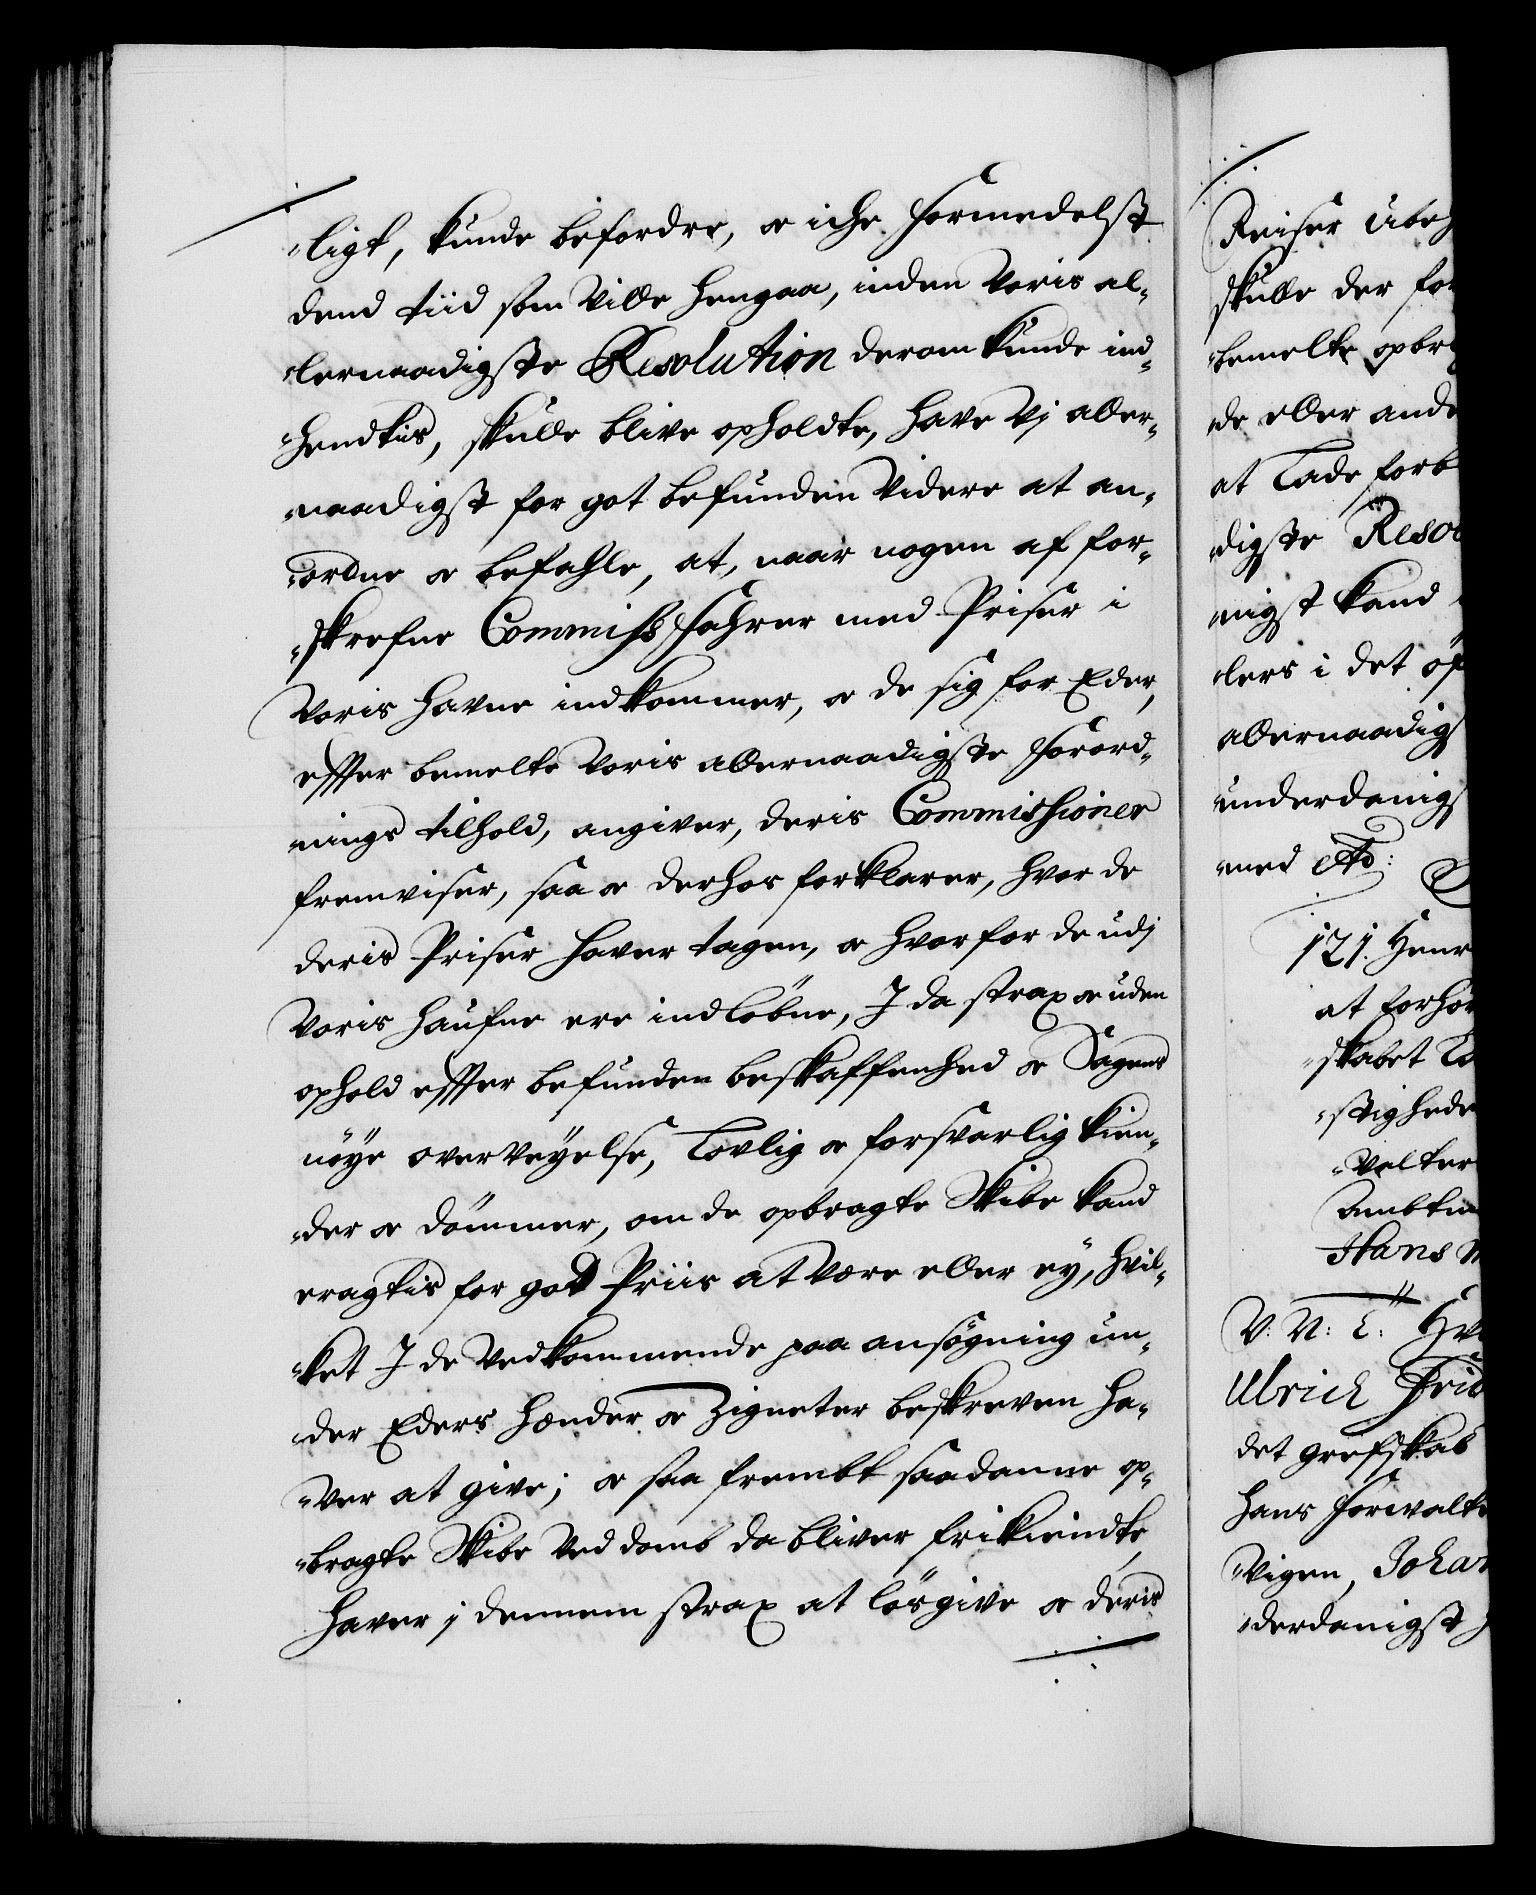 ligt, kunde befordre, og iche formedelst
dend tiid som Ville hengaa, inden Voris al-
lernaadigste Resolution derom kunde ind-
hendtis, skulle blive opholdte, have Vj aller-
naadigst for got befunden Videre at an-
ordne og befahle, at, naar nogen af for-
skrefne Commiss fahrer med Priser i
Voris havne indkommer, og de sig for Eder,
effter bemelte Voris allernaadigste forord-
nings tilhold, angiver, deris Commissioner
fremviser, saa og derhos forklarer, hvor de
deris Priser haver tagen, og hvorfor de udj
Voris haufne ere indløbne, J da strax og uden
ophold effter befunden beskaffenhed og Sagens
nøye overveyelse, Lovlig og forsvarlig kien-
der og dømmer, om de opbragte Skibe kand
eragtis for god Priis at være eller ey, hvil-
ket J de vedkommende paa ansøgning un-
der Eders hænder og Zigneter beskreven ha-
ver at give; og saa frembt saadanne op-
bragte Skibe ved domb da bliver frikiendte,
haver j dennem strax at løsgive og deris
Reiser
skulle der for
bemelte opbr
de eller ande
at Lade forb
digste Resol
nigst kand
lers i det
allernaadigs
underdanigs
med
121. Henr
at forhør
skabet
stighede
valter
Ambtm
Hans
V: V: E: Hv
Ulrich Frid
det grefskab
hans forvalte
vigen, Johan
derdanigst